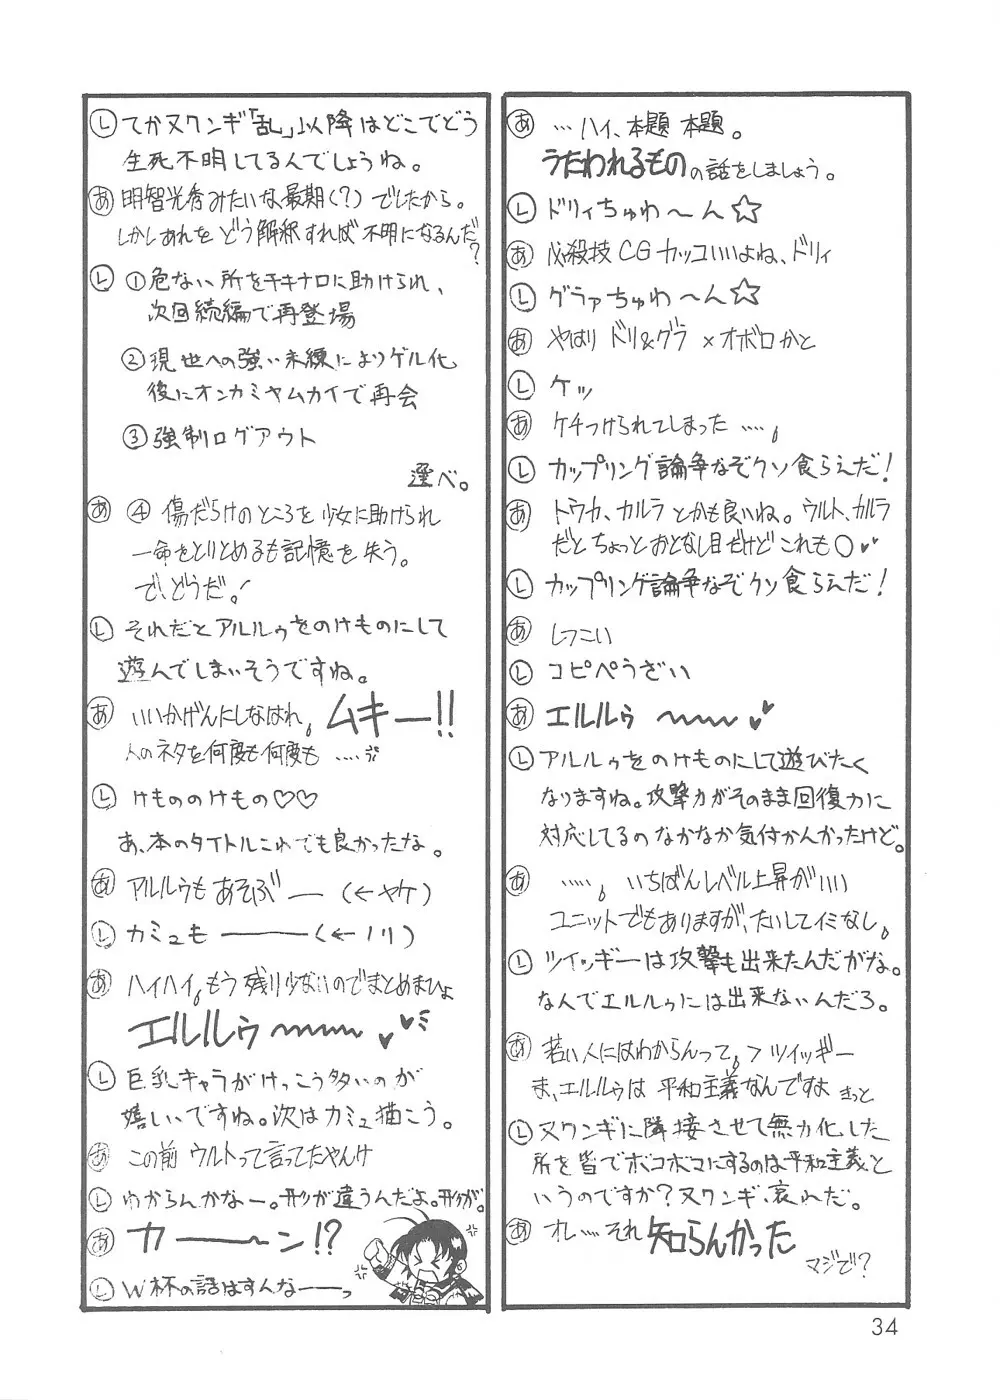 あ …ハイ、本題 本題。
うたわれるもの の話をしましょう。
L ドリィちゅわ〜ん☆
あ 必殺技CGカッコいいよね、ドリィ
L グラァちゅわ〜ん☆
あ やはり ドリ&グラ×オボロかと
L ケッ
あ ケチつけられてしまった……。
L カップリング論争なぞクソ食らえだ!
あ トウカ、カルラ とかも良いね。ウルト、カルラ
だとちょっとおとなし目だけどこれも○♥♥
L カップリング論争なぞクソ食らえだ!
あ しつこい
L コピペうざい
あ エルルゥ 〜〜〜♥♥
L アルルゥをのけものにして遊びたく
なりますね。攻撃力がそのまま回復力に
対応してるの なかなか気付かんかったけど。
あ ……。いちばんレベル上昇がいい
ユニットでもありますが、たいしてイミなし。
L ツイッギーは攻撃も出来たんだがな。
なんでエルルゥには出来ないんだろ。
あ 若い人にはわからんって。>ツイッギー
ま、エルルゥは 平和主義なんですよ きっと
L ヌワンギに隣接させて無力化した
所を皆でボコボコにするのは平和主義と
いうのですか?ヌワンギ、哀れだ。
あ オレ……それ 知らんかった
マジで?
L てかヌワンギ「乱」以降はどこでどう
生死不明してるんでしょうね。
あ 明智光秀みたいな最期(?)でしたから。
しかしあれを どう解釈すれば 不明になるんだ?
L ①危ない所をチキナロに助けられ、
次回続編で再登場
②現世への強い未練によりゲル化
後にオンカミヤムカイで再会
③強制ログアウト
選べ。
あ ④ 傷だらけのところを少女に助けられ
一命をとりとめるも記憶を失う。
で、どうだ!
L それだとアルルゥをのけものにして
遊んでしまいそうですね。
あ いいかげんにしなはれ。ムキー!!
人のネタを何度も何度も……
L けもののけもの♡♡
あ、本のタイトルこれでも良かったな。
あ アルルゥも あそぶ ― (←ヤケ)
L カミュも ―――(←ノリ)
あ ハイハイ。もう残り少ないのでまとめまひょ
エルルゥ 〜〜〜♥♥
L 巨乳キャラがけっこう多いのが
嬉しいですね。次はカミュ描こう。
あ この前 ウルトって言ってたやんけ
L わからんかなー。形が違うんだよ。形が。
あ カ――〜ン!?
L W杯の話はすんな――っ
34